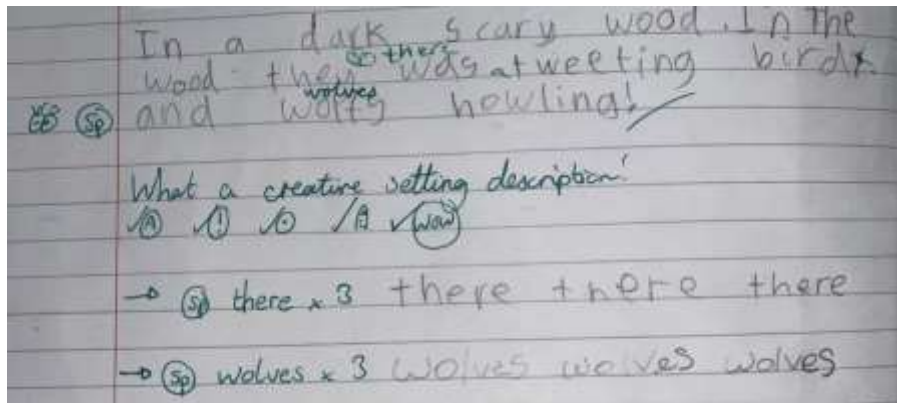 In a dark scary wood. In The
sp there
wood they was a tweeting bird
wolves
Sp and wolfs howling!
What a creative setting description!
A ! . A wow
→ Sp there x 3 there there there
→ Sp wolves x 3 wolves wolves wolves